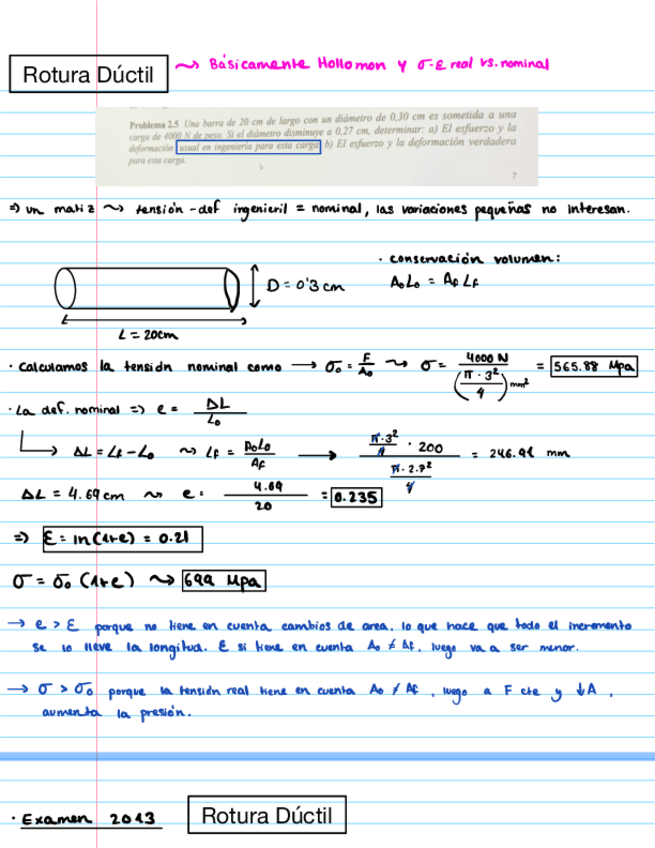 Rotura Dúctil
~> Básicamente Hollomon y σ-ε real vs. nominal
Problema 2.5 Una barra de 20 cm de largo con un diámetro de 0,30 cm es sometida a una
carga de 4000 N de peso. Si el diámetro disminuye a 0,27 cm, determinar: a) El esfuerzo y la
deformación usual en ingeniería para esta carga b) El esfuerzo y la deformación verdadera
para esta carga.
7
=> un matiz ~> tensión-def ingenieril = nominal, las variaciones pequeñas no interesan.
· conservación volumen:
A₀L₀ = A_f L_f
D = 0'3 cm
L = 20cm
· Calculamos la tensión nominal como → σ₀ = F/A₀ ~> σ = 4000 N / (π · 3²/4) mm² = 565.88 Mpa
· La def. nominal => e = ΔL/L₀
ΔL = L_f - L₀ ~> L_f = A₀L₀/A_f → (π·3²/4 · 200) / (π·2.7²/4) = 246.91 mm
ΔL = 4.69 cm ~> e = 4.69/20 = 0.235
=> ε = ln(1+e) = 0.21
σ = σ₀ (1+e) ~> 699 Mpa
→ e > ε porque no tiene en cuenta cambios de area, lo que hace que todo el incremento
se lo lleve la longitud. ε si tiene en cuenta A₀ ≠ A_f, luego va a ser menor.
→ σ > σ₀ porque la tensión real tiene en cuenta A₀ ≠ A_f, luego a F cte y ↓A,
aumenta la presión.
· Examen 2013
Rotura Dúctil